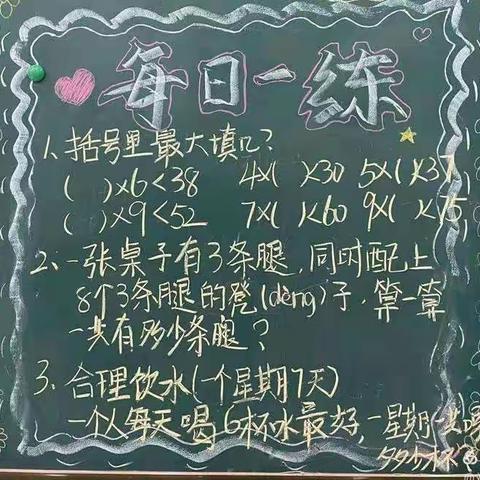 每日一练
1、括号里最大填几?
( )×6<38 4×( )<30 5×( )<37
( )×9<52 7×( )<60 9×( )<75
2、一张桌子有3条腿,同时配上
8个3条腿的登(dèng)子,算一算
一共有多少条腿?
3、合理饮水(一个星期7天)
一个人每天喝6杯水最好,一星期一共喝
多少杯